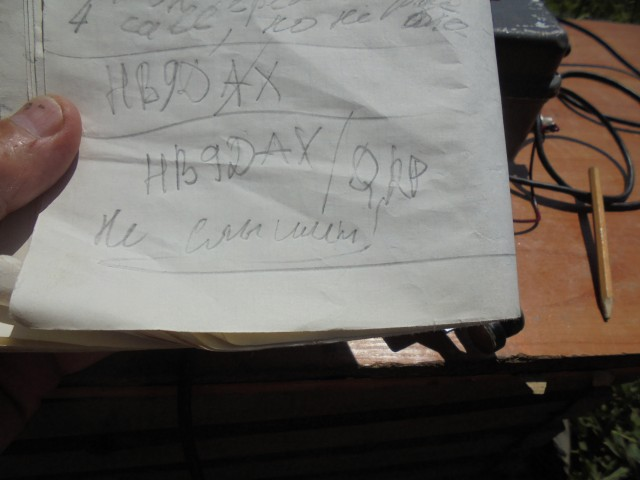 4
call, но не
HB9DAX
HB9DAX/QRP
не слышит!